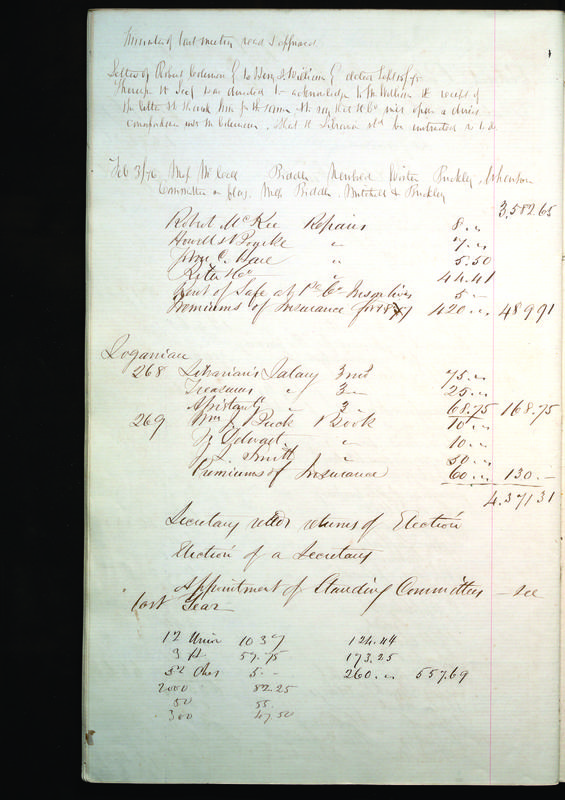 Minutes of last meeting read & approved.
Letter of Robert Coleman to Henry & William dated Sept 18/75
was directed to acknowledge to Mr William the receipt of
the letter & thank him for the same & say that the Co
comparison with Mr Coleman, that the Librarian shd be instructed
Feb 3/76 Messrs McCall Biddle Newbold Wister Buckley
Committee Messrs Biddle, Mitchell & Buckley
3,582.65
Robert McKee Repairs 8 ..
Howell & " 7 ..
Wm C. Hare " 5.50
& Co " 44.41
Rent of Safe at Co Insn lives 5 -
Premiums of Insurance for 1877 420 .. 489 91
Loganian
268 Librarian's Salary 3 mos 75 ..
Treasurers " 3 " 25 ..
Assistants " 3 " 68.75 168.75
269 Wm J Buck 1 Book 10 ..
" 10 ..
J. L. Smith " 50 ..
Premiums of Insurance 60 .. 130. -
4.371 31
Secretary returns of Election
Election of a Secretary
Appointment of Standing Committees - see
last Year
12 Union 10 37 124.44
3 ft 57.75 173.25
52 5. - 260 .. 557.69
2000 82.25
50 55.
300 47.50